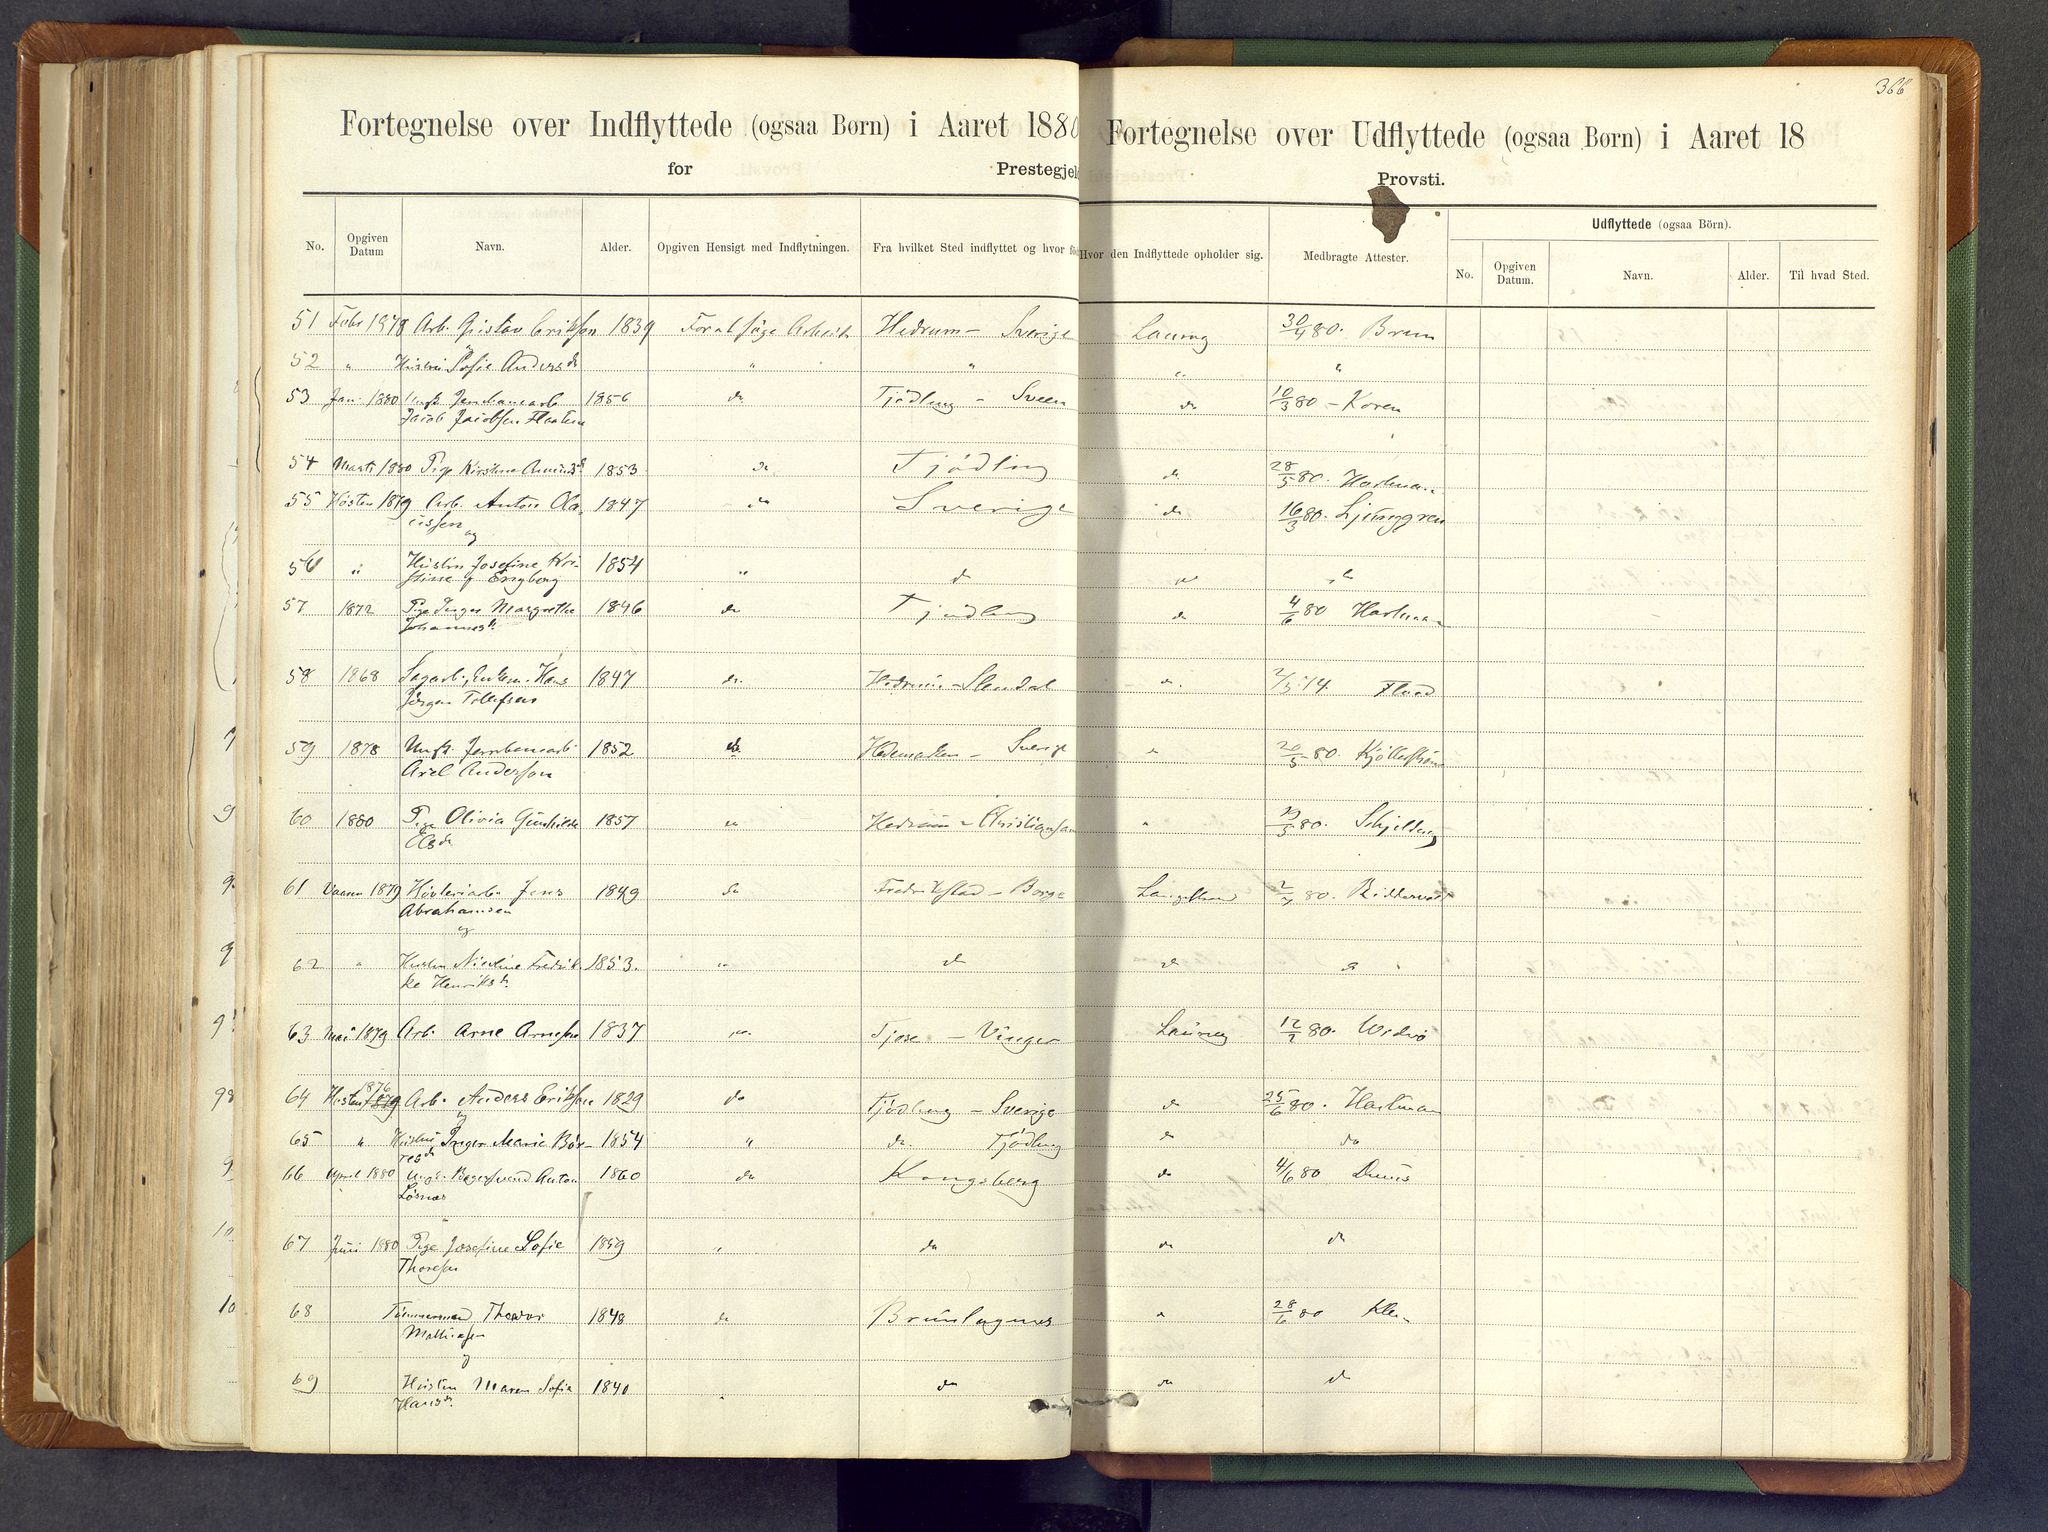 366
Fortegnelse over Indflyttede (ogsaa Børn) i Aaret 1880
for Prestegjeld
Fortegnelse over Udflyttede (ogsaa Børn) i Aaret 18
Provsti.
No. Opgiven Datum Navn. Alder. Opgiven Hensigt med Indflytningen. Fra hvilket Sted indflyttet og hvor
Hvor den Indflyttede opholder sig. Medbragte Attester. Udflyttede (ogsaa Börn).
No. Opgiven Datum. Navn. Alder. Til hvad Sted.
51 Febr 1878 Arb. Gustav Erikson 1839 For at søge Arbeide Hedrum - Sverige Laurvig 30/4 80. Brun
og
52 " Hustru Sofie Andersd. " " " "
53 Jan. 1880 Ungk. Jernbanearb. 1856 do Tjödling - Sveen do 10/3 80 - Koren
Jacob Jacobsen
54 Marts 1880 Pige Kirstine 1853 do Tjödling do 28/5 80. Hartman
55 Høsten 1879 Arb. Anton Cla- 1847 do Sverige do 16/3 80. Ljunggren
ussen
og
56 " Hustru Josefine Kri- 1854 " do do do
stine Engberg
57 1872 Pige Inger Margrethe 1846 do Tjødling do 4/6 80 Hartman
Johannesd.
58 1868 Sagarb. Enkem. Hans 1847 do. Hedrum - Slemdal do. 74.
Jørgen Tollefsen
59 1878 Ungk. Jernbanearb. 1852 do - Sverige " 20/5 80.
Axel Anderson
60 1880 Pige Olivia Gunhilde 1857 do Hedrum - Christiansand " 80.
Olsd.
61 Vaaren 1879 Høvleriarb. Jens 1849 do Fredrikstad - Borge 2/7 80.
Abrahamsen
og
62 " Hustru Nicoline Fredrik- 1853. " do do do
ke Henriksd.
63 Mai 1879 Arb. Arne Arnesen 1837 do. Tjøse - Vinger Laurvig 80.
64 Høsten 1876 Arb. Anders Erikson 1829 do Tjödling - Sverige do 25/6 80. Hartman
og
65 " Hustru Inger Marie Bør- 1854 " do. Tjödling do do
resd.
66 April 1880 Ungk. Bagersvend Anton 1860 do Kongsberg do 4/6 80
67 Juni 1880 Pige Josefine Sofie 1859 " do do do
Thoresen
68 Tømmermand Theodor 1848 do Brunlagnes " 28/6 80
Mathiasen
og
69 Hustru Maren Sofie 1840 " do do do
Hansd.